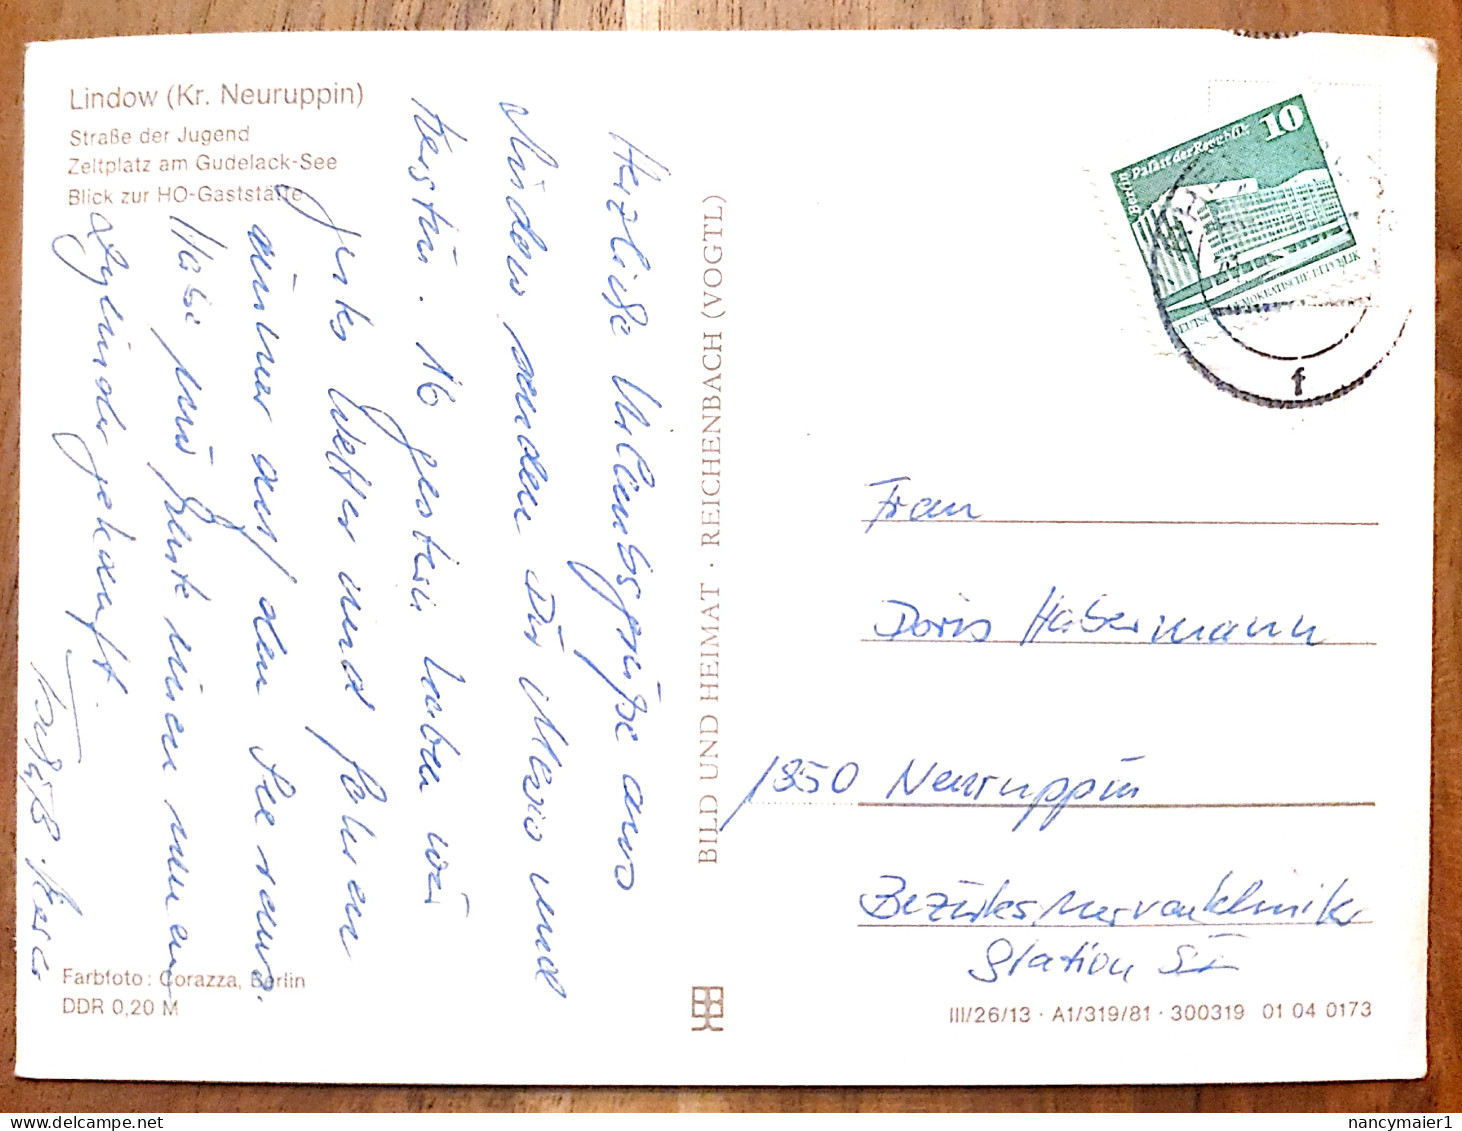 Lindow (Kr. Neuruppin)
Straße der Jugend
Zeltplatz am Gudelack-See
Blick zur HO-Gaststätte
Herzliche Urlaubsgrüße aus
Lindow senden Dir Mario und
Kerstin. 16 gestern haben wir
Wetter und fahren
immer auf den See raus.
Habe heute einen
Zylinder gekauft.
Farbfoto: Corazza, Berlin
DDR 0,20 M
BILD UND HEIMAT · REICHENBACH (VOGTL)
10
Berlin Palast der Republik
DEUTSCHE DEMOKRATISCHE REPUBLIK
f
Frau
Doris Habermann
1950 Neuruppin
Bezirksnervenklinik
Station
III/26/13 · A1/319/81 · 300319 01 04 0173
nancymaier1